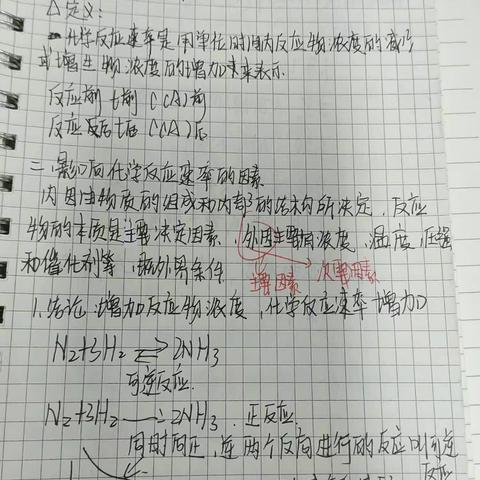 △定义:
化学反应速率是用单位时间内反应物浓度的减少
或增生物浓度的增加来表示
反应前 t前 C(A)前
反应后 t后 C(A)后
二.影响化学反应速率的因素
内因由物质的组成和内部的结构所决定,反应
物的本质是主要决定因素,外因主要有浓度,温度,压强
和催化剂等,外界条件
主要因素 次要因素
1.结论:增加反应物浓度,化学反应速率增加
N₂+3H₂ ⇌ 2NH₃
可逆反应.
N₂+3H₂ → 2NH₃.正反应.
同时向正,逆两个反向进行的反应叫可逆
反应